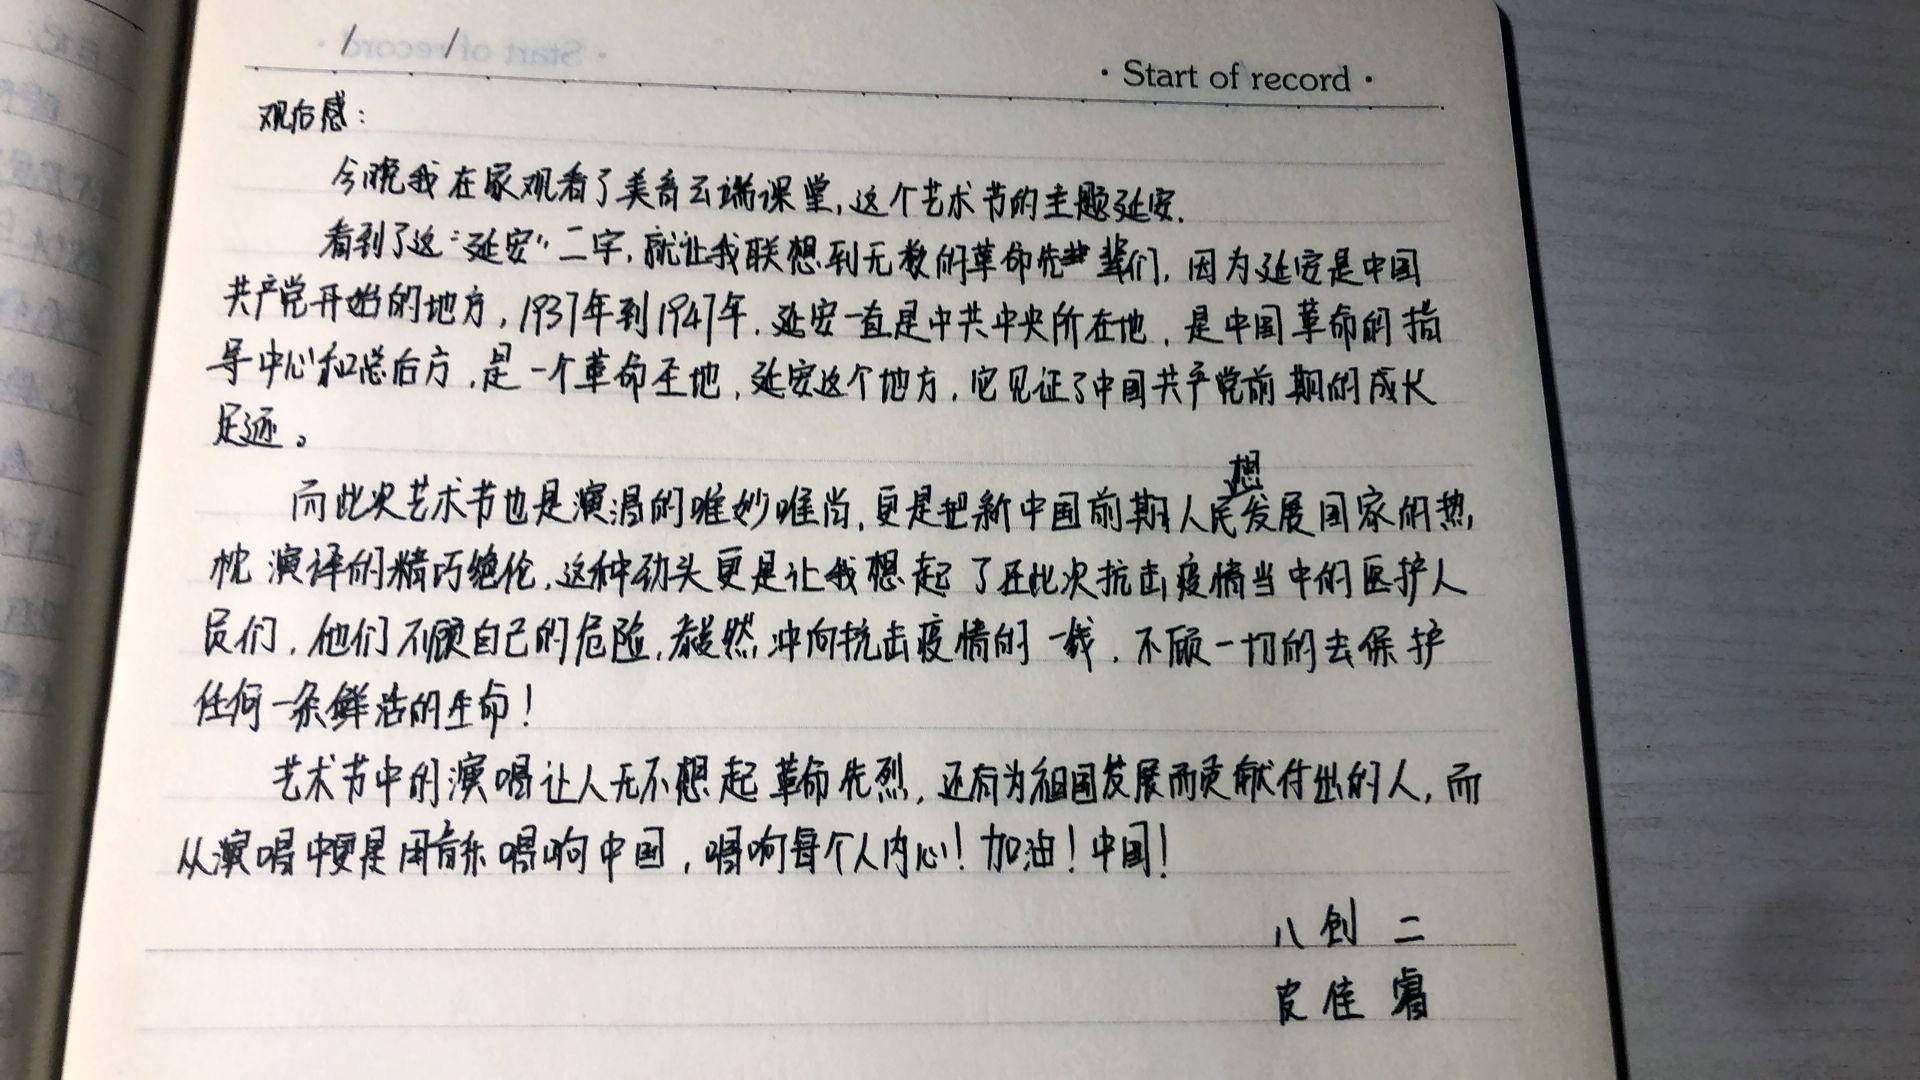 · Start of record ·
观后感：
今晚我在家观看了美育云端课堂,这个艺术节的主题延安.
看到了这“延安”二字,就让我联想到无数的革命先辈们,因为延安是中国
共产党开始的地方,1937年到1947年.延安一直是中共中央所在地,是中国革命的指
导中心和总后方,是一个革命圣地,延安这个地方,它见证了中国共产党前期的成长
足迹。
而此次艺术节也是演唱的唯妙唯肖,更是把新中国前期人民想发展国家的热
忱演译的精巧绝伦,这种劲头更是让我想起了在此次抗击疫情当中的医护人
员们,他们不顾自己的危险,毅然冲向抗击疫情的一线,不顾一切的去保护
任何一条鲜活的生命!
艺术节中的演唱让人无不想起革命先烈,还有为祖国发展而贡献付出的人,而
从演唱中更是用音乐唱响中国,唱响每个人内心!加油!中国!
八创二
皮佳睿